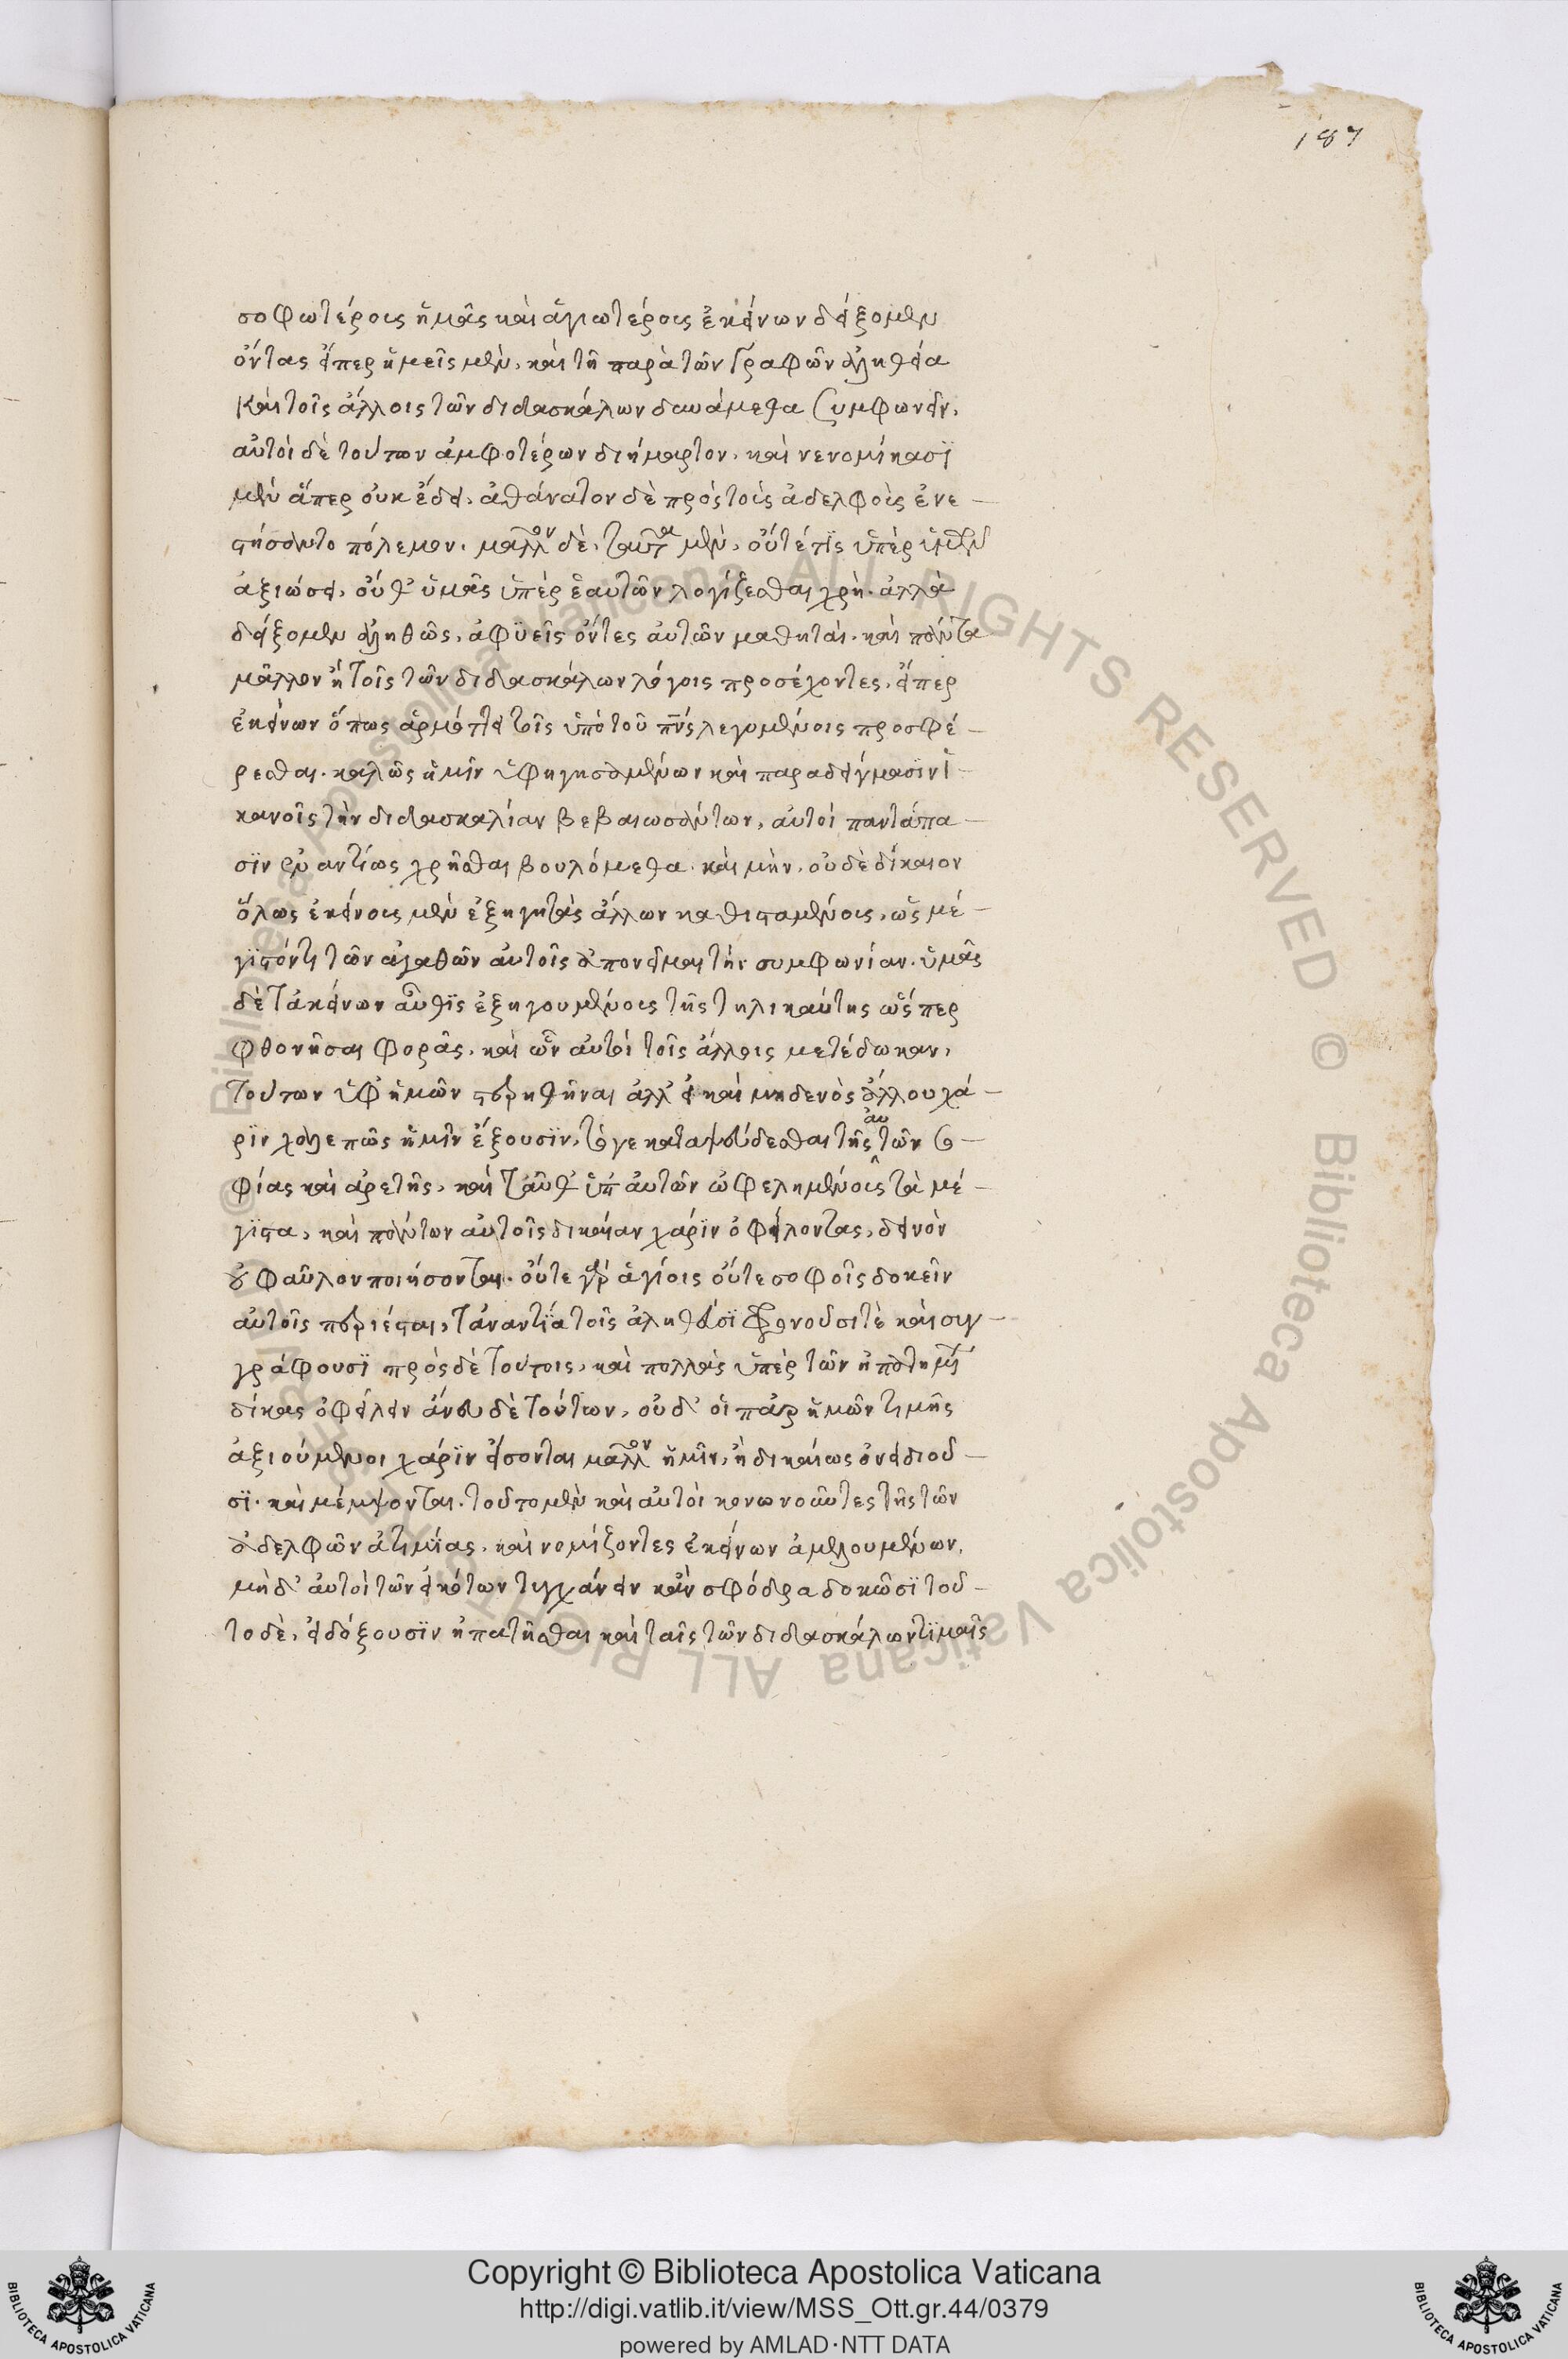 187
σοφωτέρους ἡμᾶς καὶ ἁγιωτέρους ἐκείνων δείξομεν
ὄντας εἴπερ ἡμεῖς μὲν, καὶ τῇ παρὰ τῶν Γραφῶν ἀληθεία
καὶ τοῖς ἄλλοις τῶν διδασκάλων δυνάμεθα συμφωνεῖν,
αὐτοὶ δὲ τούτων ἀμφοτέρων διήμαρτον, καὶ νενομίκασϊ
μὲν ἅπερ οὐκ ἔδει, ἀθάνατον δὲ πρὸς τοὺς ἀδελφοὺς ἐνε
στήσαντο πόλεμον. μᾶλλον δὲ, ταῦτα μὲν, οὔτέ τϊς ὑπὲρ ἡμῶν
ἀξιώσει, οὔθ' ὑμᾶς ὑπὲρ ἑαυτῶν λογίζεσθαι χρή. ἀλλὰ
δείξομεν ἀληθῶς, ἀφϋεῖς ὄντες αὐτῶν μαθηταὶ. καὶ πάντα
μᾶλλον ἢ τοῖς τῶν διδασκάλων λόγοις προσέχοντες, εἴπερ
ἐκείνων ὅπως ἁρμόττει τοῖς ὑπὸ τοῦ πνς λεγομένοις προσφέ
ρεσθαι. καλῶς ἡμῖν ὑφηγησαμένων καὶ παραδείγμασϊν ἱ
κανοῖς τὴν διδασκαλίαν βεβαιωσάντων, αὐτοὶ παντάπα
σϊν ἐναντίως χρῆσθαι βουλόμεθα. καὶ μὴν, οὐδὲ δίκαιον
ὅλως ἐκείνους μὲν ἐξηγητὰς ἄλλων καθισταμένους, ὡς μέ
γϊστόν τι τῶν ἀγαθῶν αὐτοῖς ἀπονεῖμαι τὴν συμφωνίαν. ὑμᾶς
δὲ τἀκείνων αὖθϊς ἐξηγουμένους τῆς τηλικαύτης ὥσπερ
φθονῆσαι φορᾶς, καὶ ὧν αὐτοὶ τοῖς ἄλλοις μετέδωκαν,
τούτων ὑφ' ἡμῶν στερηθῆναι ἀλλ' εἰ καὶ μηδενὸς ἄλλου χά
ρϊν χαλεπῶς ἡμῖν ἕξουσϊν, τό γε καταψεύδεσθαι τῆς αὐτῶν σο
φίας καὶ ἀρετῆς, καὶ ταῦθ' ὑπ' αὐτῶν ὠφελημένοις τὰ μέ
γϊστα, καὶ πάντων αὐτοῖς δικαίαν χάρϊν ὀφείλοντας, δεινὸν
οὐ φαῦλον ποιήσονται. οὔτε γὰρ ἁγίοις οὔτε σοφοῖς δοκεῖν
αὐτοῖς περιέσται, τἀναντϊα τοῖς ἀληθέσϊ φρονοῦσι τὲ καὶ συγ
γράφουσϊ πρὸς δὲ τούτοις, καὶ πολλὰς ὑπὲρ τῶν ἠπατημένων
δίκας ὀφείλειν ἄνευ δὲ τούτων, οὐδ' οἱ παρ' ἡμῶν τιμῆς
ἀξιούμενοι χάρϊν εἴσονται μᾶλλον ἡμῖν, ἢ δικαίως ὀνειδιοῦ
σϊ. καὶ μέμψονται. τοῦτο μὲν καὶ αὐτοὶ κοινωνοῦντες τῆς τῶν
ἀδελφῶν ἀτιμίας, καὶ νομίζοντες ἐκείνων ἀμελουμένων,
μηδ' αὐτοὶ τῶν εἰκότων τυγχάνειν κἂν σφόδρα δοκῶσϊ τοῦ
το δὲ, εἰ δόξουσϊν ἠπατῆσθαι καὶ ταῖς τῶν διδασκάλων τϊμαῖς
© Biblioteca Apostolica Vaticana ALL RIGHTS RESERVED © Biblioteca Apostolica Vaticana ALL RIGHTS RESERVED
Copyright © Biblioteca Apostolica Vaticana
http://digi.vatlib.it/view/MSS_Ott.gr.44/0379
powered by AMLAD·NTT DATA
BIBLIOTECA APOSTOLICA VATICANA
BIBLIOTECA APOSTOLICA VATICANA